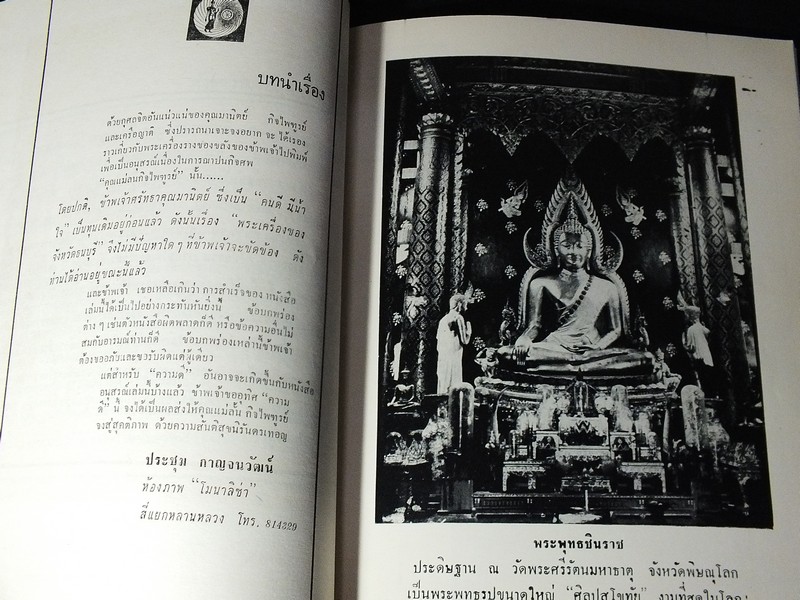 บทนำเรื่อง
ด้วยกุศลจิตอันแน่วแน่ของคุณมานิตย์ กิจไพฑูรย์
และเครือญาติ ซึ่งปรารถนาเจาะจงอยาก จะ ได้เรื่อง
ราวเกี่ยวกับพระเครื่องรางของขลังของข้าพเจ้าไปพิมพ์
เพื่อเป็นอนุสรณ์เนื่องในการฌาปนกิจศพ
"คุณแม่ล้นกิจไพฑูรย์" นั้น......
โดยปกติ, ข้าพเจ้าศรัทธาคุณมานิตย์ ซึ่งเป็น "คนดี มีน้ำ
ใจ" เป็นทุนเดิมอยู่ก่อนแล้ว ดังนั้นเรื่อง "พระเครื่องของ
จังหวัดธนบุรี" จึงไม่มีปัญหาใด ๆ ที่ข้าพเจ้าจะขัดข้อง ดัง
ท่านได้อ่านอยู่ขณะนี้แล้ว
และข้าพเจ้า เชื่อเหลือเกินว่า การสำเร็จของ หนังสือ
เล่มนี้ได้เป็นไปอย่างกระทันหันยิ่งนี้ ข้อบกพร่อง
ต่าง ๆ เช่นตัวหนังสือผิดพลาดก็ดี หรือข้อความอื่นไม่
สมกับอารมณ์ท่านก็ดี ข้อบกพร่องเหล่านี้ข้าพเจ้า
ต้องขออภัยและขอรับผิดแต่ผู้เดียว
แต่สำหรับ "ความดี" อันอาจจะเกิดขึ้นกับหนังสือ
อนุสรณ์เล่มนี้บ้างแล้ว ข้าพเจ้าขออุทิศ "ความ
ดี" นี้ จงได้เป็นผลส่งให้คุณแม่ล้น กิจไพฑูรย์
จงสู่สุคติภาพ ด้วยความสันติสุขนิรันดรเทอญ
ประชุม กาญจนวัฒน์
ห้องภาพ "โมนาลิซ่า"
สี่แยกหลานหลวง โทร. 814229
พระพุทธชินราช
ประดิษฐาน ณ วัดพระศรีรัตนมหาธาตุ จังหวัดพิษณุโลก
เป็นพระพุทธรูปขนาดใหญ่ "ศิลปสุโขทัย" งามที่สุดในโลก